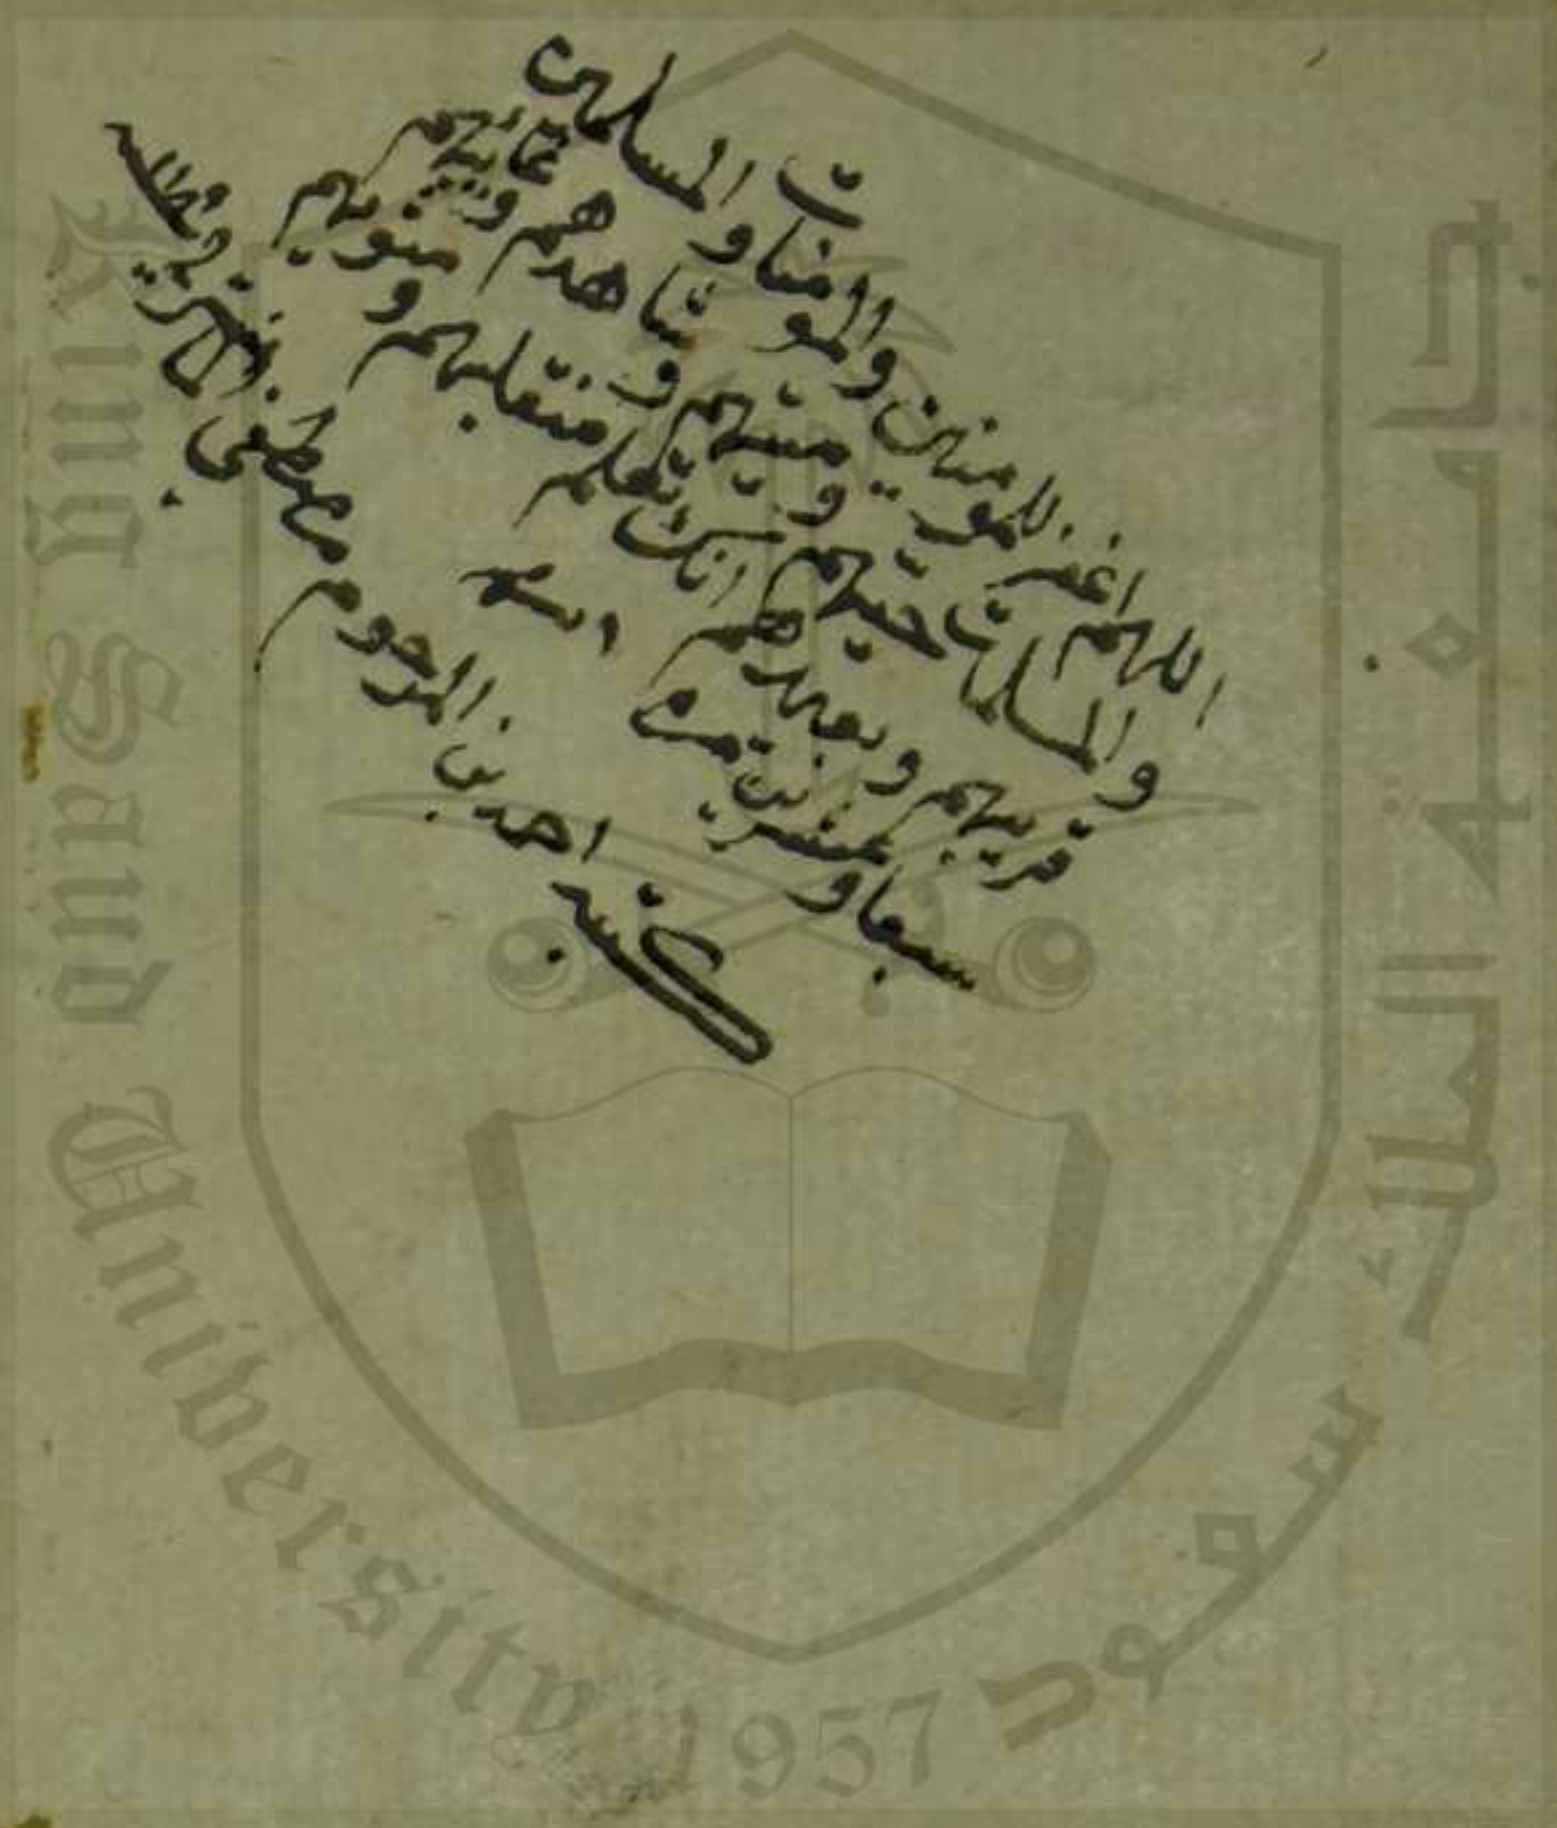 اللهم اغفر للمومنين والمومنات والمسلمين
والمسلمات حيهم وميتهم وشاهدهم وغايبهم
قريبهم وبعيدهم انك تعلم منقلبهم ومثويهم
سبعا وعشرين مرة
كتبه احمد بن المرحوم مصطفى
جامعة الملك سعود
King Saud University 1957